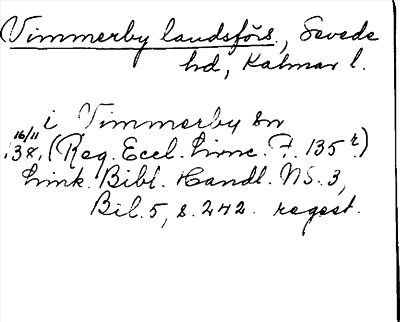 Vimmerby landsförs., Sevede
hd, Kalmar l.
i Vimmerby sn
16/11
38, (Reg. Eccl. Linc. F. 135 r.)
Link. Bibl. Handl. NS. 3,
Bil. 5, s. 242. regest.